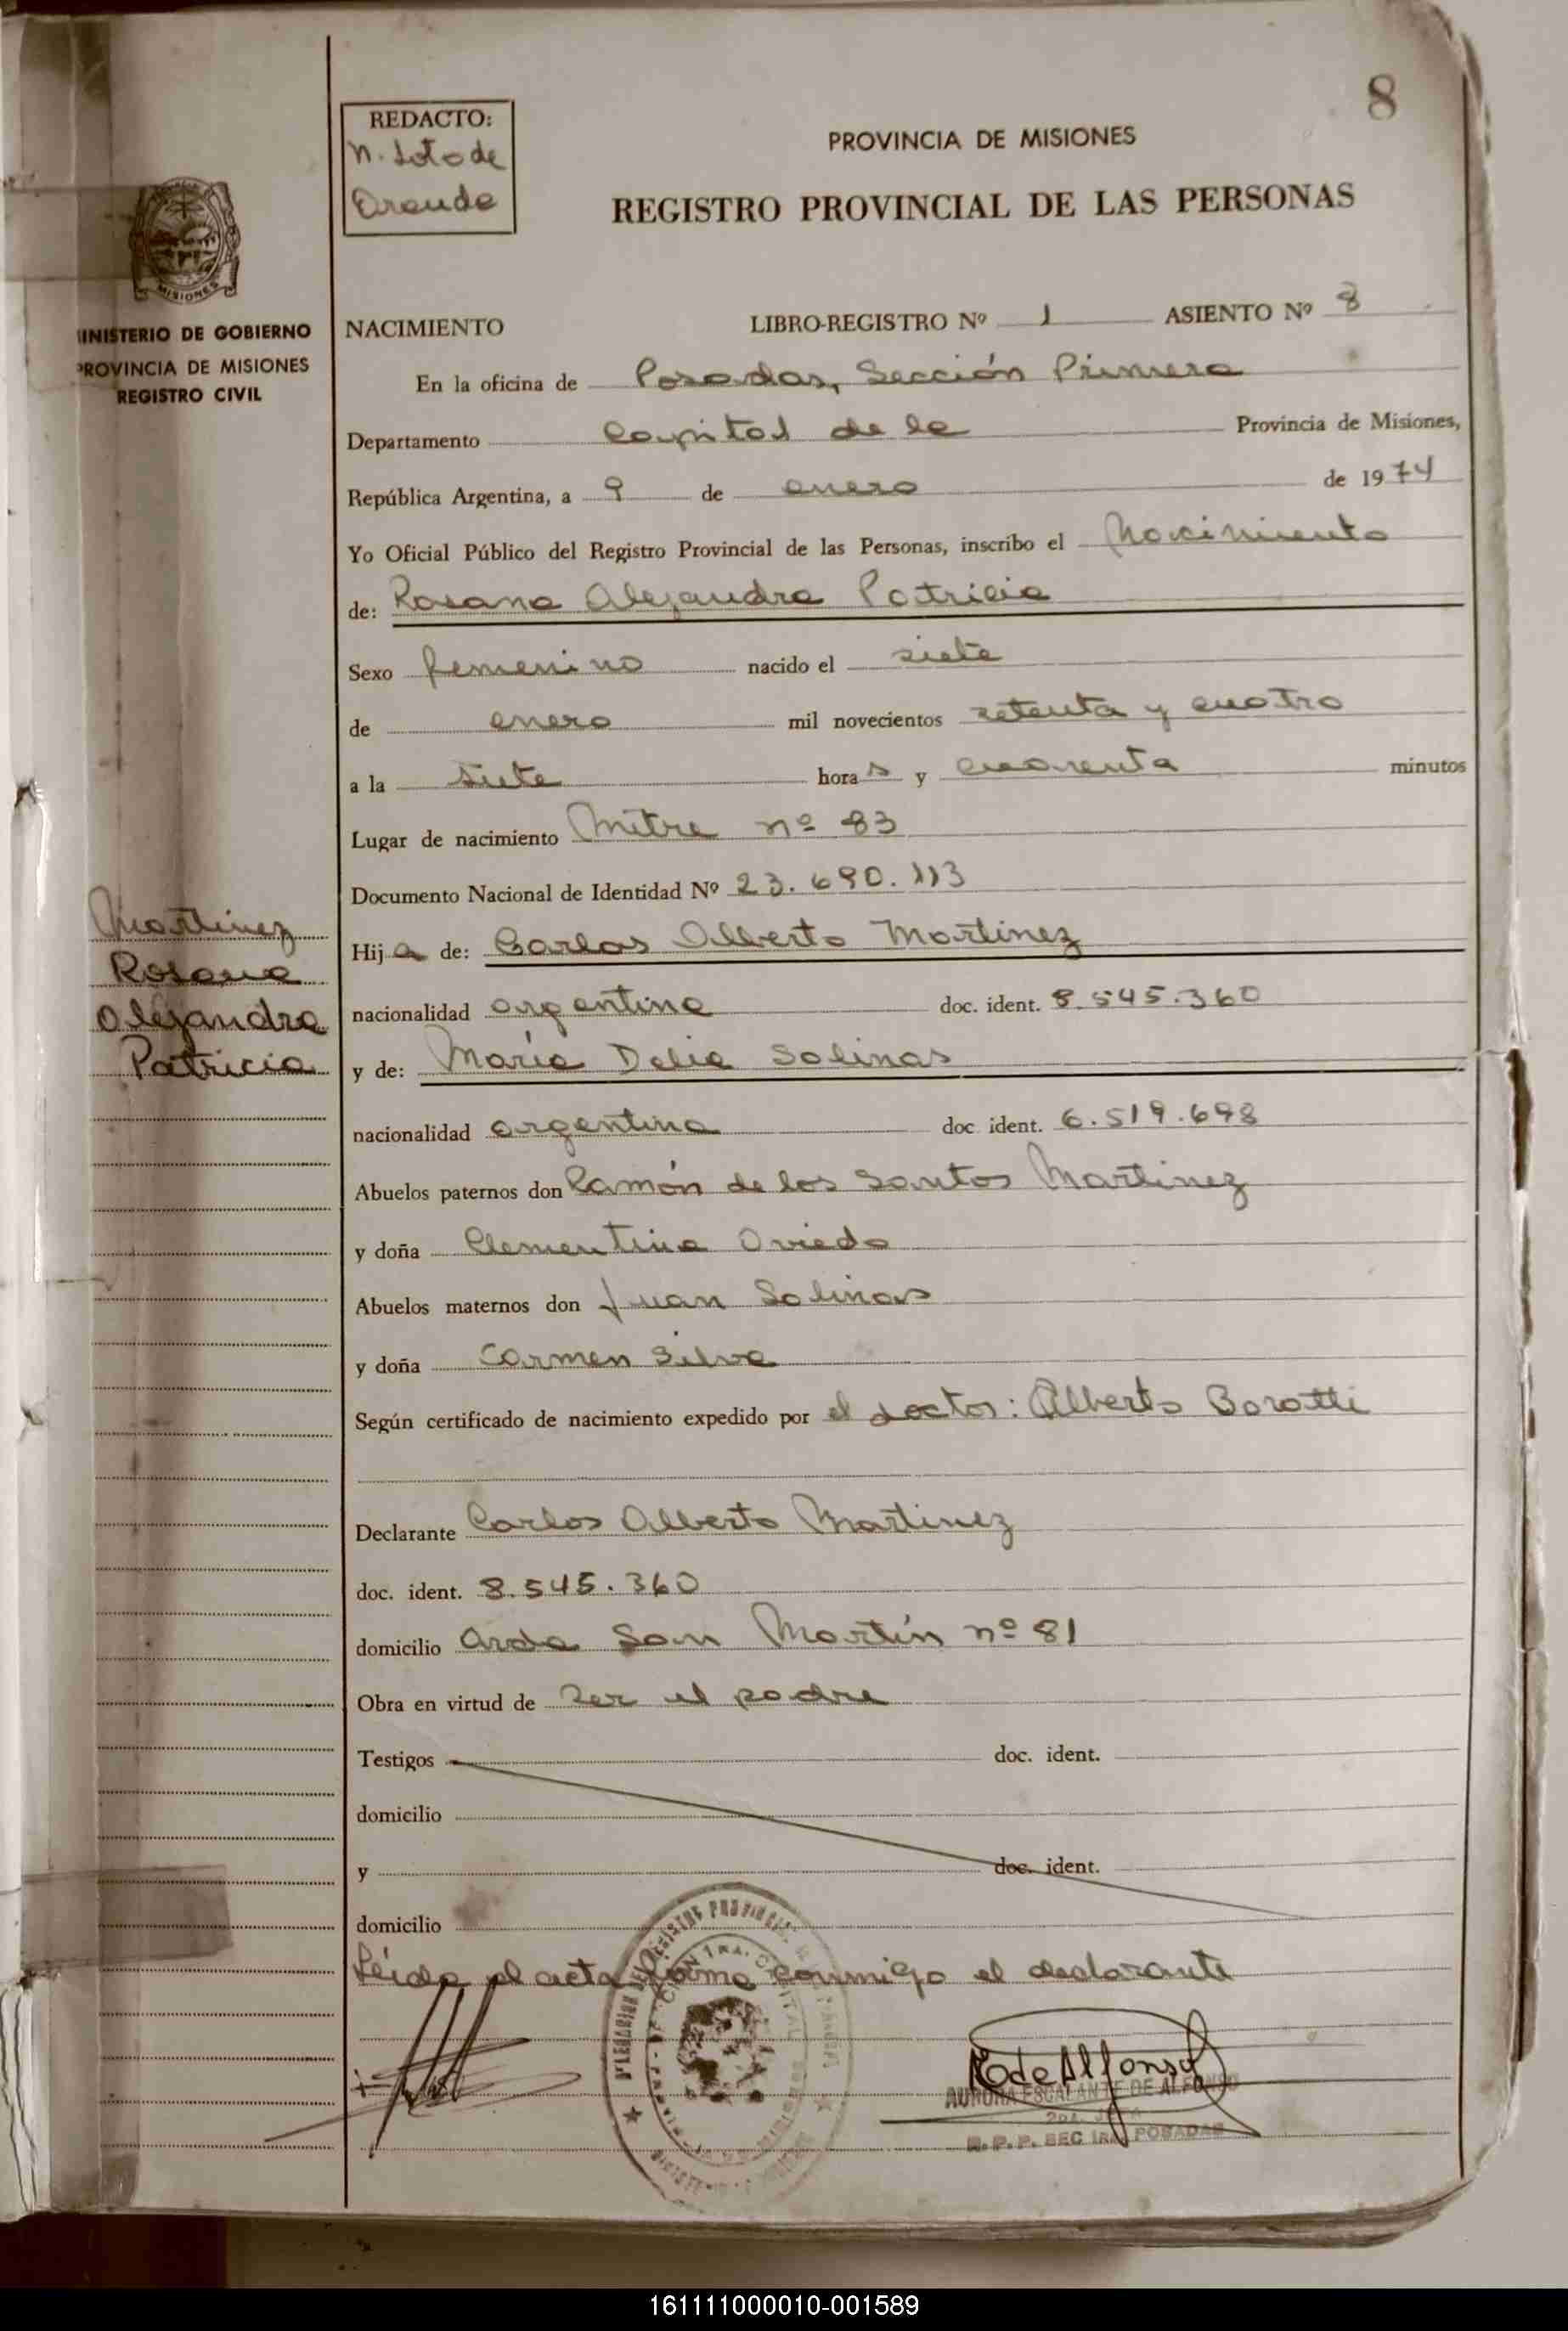 8
REDACTO:
N. Soto de
PROVINCIA DE MISIONES
REGISTRO PROVINCIAL DE LAS PERSONAS
MISIONES
MINISTERIO DE GOBIERNO
PROVINCIA DE MISIONES
REGISTRO CIVIL
NACIMIENTO LIBRO-REGISTRO Nº 1 ASIENTO Nº 8
En la oficina de Posadas, Sección Primera
Departamento Capital de la Provincia de Misiones,
República Argentina, a 9 de enero de 1974
Yo Oficial Público del Registro Provincial de las Personas, inscribo el Nacimiento
de: Rosana Alejandra Patricia
Sexo femenino nacido el siete
de enero mil novecientos setenta y cuatro
a la siete horas y cuarenta minutos
Lugar de nacimiento Mitre nº 83
Documento Nacional de Identidad Nº 23.690.113
Martinez
Rosana
Alejandra
Patricia
Hija de: Carlos Alberto Martinez
nacionalidad argentina doc. ident. 8.545.360
y de: María Delia Solinas
nacionalidad argentina doc ident. 6.519.698
Abuelos paternos don Ramón de los Santos Martinez
y doña Clementina Oviedo
Abuelos maternos don Juan Solinas
y doña Carmen Silva
Según certificado de nacimiento expedido por el doctor: Alberto
Declarante Carlos Alberto Martinez
doc. ident. 8.545.360
domicilio Avda San Martín nº 81
Obra en virtud de ser el padre
Testigos doc. ident.
domicilio
y doc. ident.
domicilio
Leida el acta firma conmigo el declarante
de Alfonso
AURORA ESCALANTE DE ALFONSO
2da. JEFA
R.P.P. SEC 1RA. POSADAS
161111000010-001589